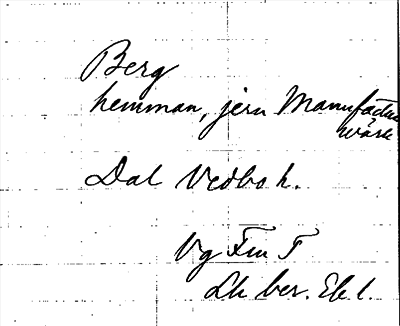 Berg
hemman, jern Manufactur
värk
Dal Vedbo h.
Vg Fm F
Lh ber. Ek 1.